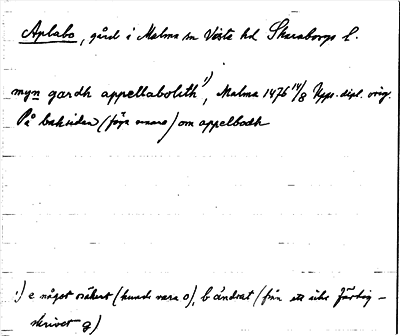 Aplabo, gård i Malma sn Viste hd Skaraborgs l.
myn gardh appellabolith¹⁾, Malma 1476 14/8 Upps. dipl. orig.
På baksidan (föga senare) om appelbodh
¹⁾ e något osäkert (kunde vara o), b ändrat (från ett icke färdig-
skrivet g)